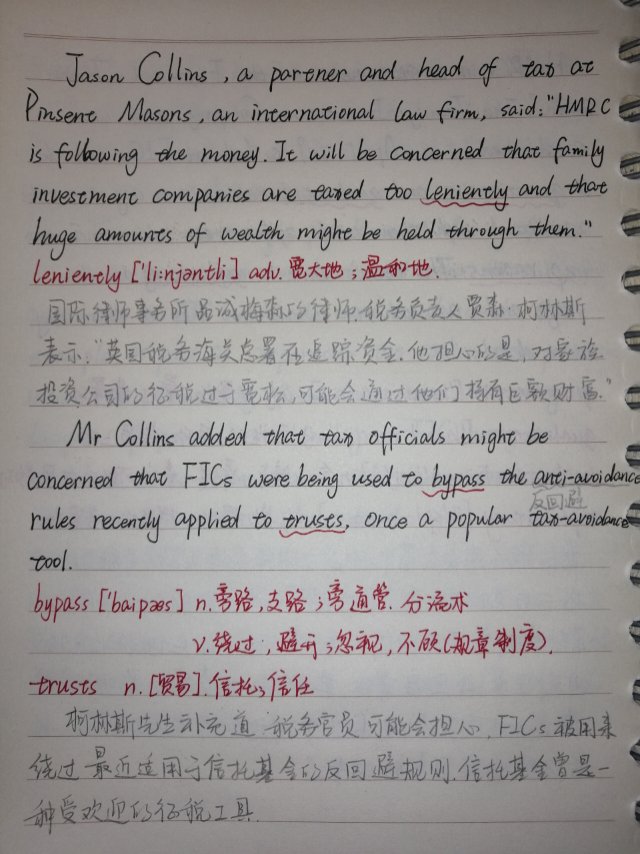 Jason Collins, a partner and head of tax at
Pinsent Masons, an international law firm, said: "HMRC
is following the money. It will be concerned that family
investment companies are taxed too leniently and that
huge amounts of wealth might be held through them."
leniently ['li:njəntli] adv.宽大地；温和地.
国际律师事务所品诚梅森的律师.税务负责人贾森·柯林斯
表示."英国税务海关总署在追踪资金.他担心的是,对家族
投资公司的征税过于宽松,可能会通过他们持有巨额财富."
Mr Collins added that tax officials might be
concerned that FICs were being used to bypass the anti-avoidance
反回避
rules recently applied to trusts, once a popular tax-avoidance
tool.
bypass ['baipæs] n.旁路,支路；旁通管.分流术
v.绕过,避开；忽视,不顾(规章制度).
trusts n.[贸易].信托；信任
柯林斯先生补充道 税务官员可能会担心, FICs被用来
绕过最近适用于信托基金的反回避规则.信托基金曾是一
种受欢迎的征税工具.